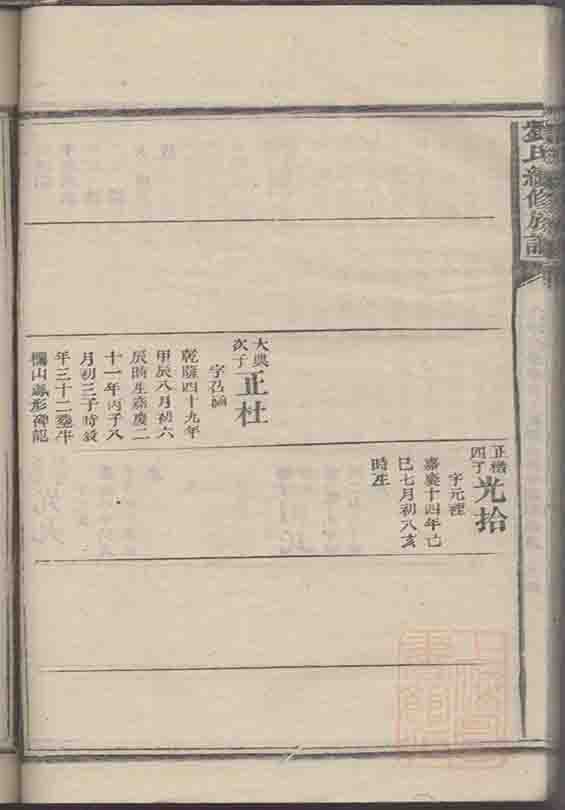 劉氏續修族譜
正楷四子光拾
字元裡
嘉慶十四年己
巳七月初八亥
時生
大典次子正杜
字召
乾隆四十九年
甲辰八月初六
辰時生嘉慶二
十一年丙子八
月初三子時歿
年三十二葬牛
欄山形碑記